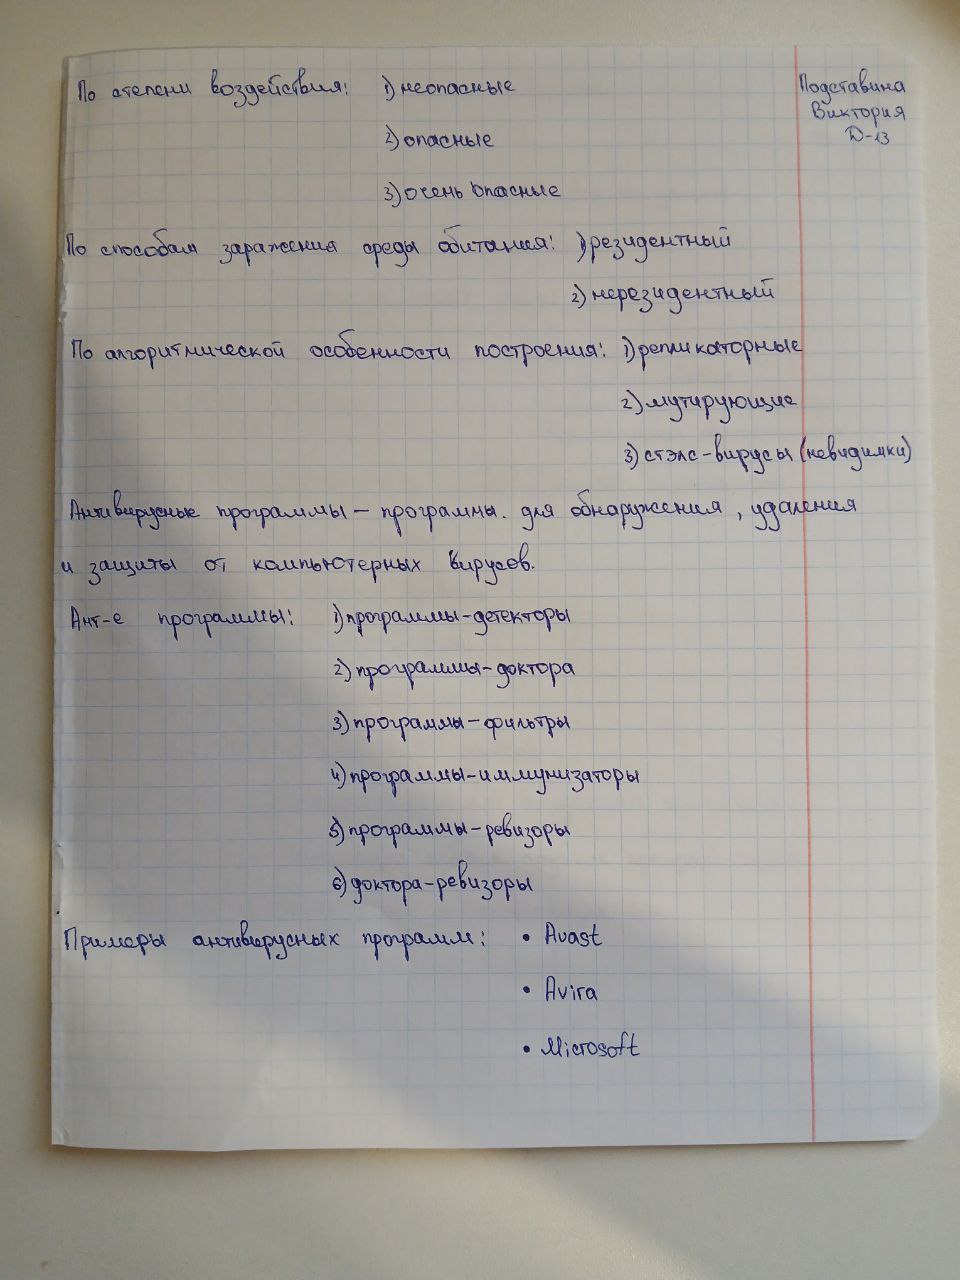 По степени воздействия: 1) неопасные
Подставина
Виктория
Д-13
2) опасные
3) очень опасные
По способам заражения среды обитания: 1) резидентный
2) нерезидентный
По алгоритмической особенности построения: 1) репликаторные
2) мутирующие
3) стэлс-вирусы (невидимки)
Антивирусные программы – программы для обнаружения, удаления
и защиты от компьютерных вирусов.
Ант-е программы: 1) программы-детекторы
2) программы-доктора
3) программы-фильтры
4) программы-иммунизаторы
5) программы-ревизоры
6) доктора-ревизоры
Примеры антивирусных программ: • Avast
• Avira
• Microsoft